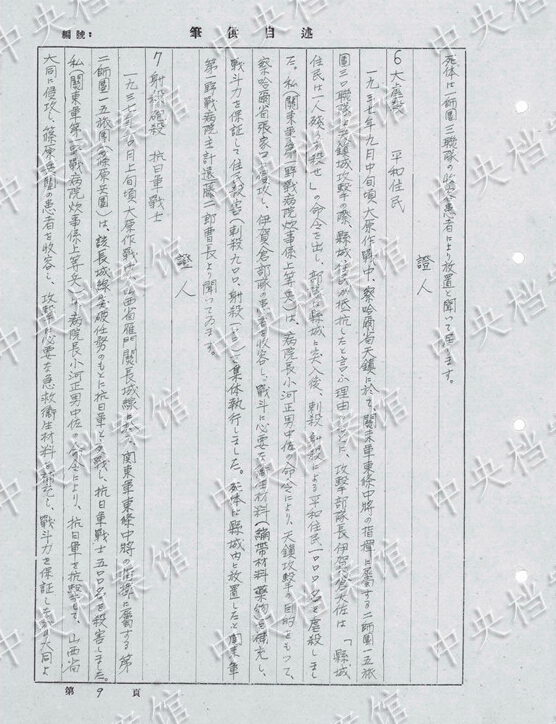 筆供自述
編號:
死体は一師團三聯隊の收容患者により放置と聞いて居ります。
證人
6 大虐殺 平和住民
一九三七年九月中旬頃大原作戰中、察哈爾省天鎮に於て、關東軍東條中將の指揮に屬する二師團一五旅
團三〇聯隊は天鎮城攻擊の際、縣城住民が抵抗したと言ふ理由のもとに、攻擊部隊長伊賀倉大佐は「縣城
住民は一人残らず殺せ」の命令を出し、部隊は縣城に突入後、刺殺射殺による平和住民一〇〇名を虐殺しまし
た。私(關東軍第一野戰病院炊事係上等兵)は、病院長小河正男中佐の命令により、天鎮攻擊の目的をもつて、
察哈爾省張家口に侵攻し、伊賀倉部隊の患者を收容し、戰斗に必要な衛生材料(繃帶材料藥物)を補充し、
戰斗力を保証して住民殺害(刺殺九〇、射殺一〇)を集体執行しました。死体は縣城內に放置したと關東軍
第一野戰病院主計遠藤二郎曹長より聞いて居ます。
證人
7 射殺砲殺 抗日軍戰士
一九三七年九月上旬頃大原作戰中、山西省雁門關長城線に於て、關東軍東條中將の指揮に屬する第
二師團一五旅團(篠原兵團)は、該長城線突破任務のもとに抗日軍と交戰し、抗日軍戰士五〇〇名を殺害しました。
私(關東軍第一野戰病院炊事係上等兵)は病院長小河正男中佐の命令により、抗日軍を抗擊する、山西省
大同に侵攻し、篠原兵團の患者を收容し、攻擊に必要な急救衛生材料を補充し、戰斗力を保証したる大同よ
第 9 頁
中央档案馆